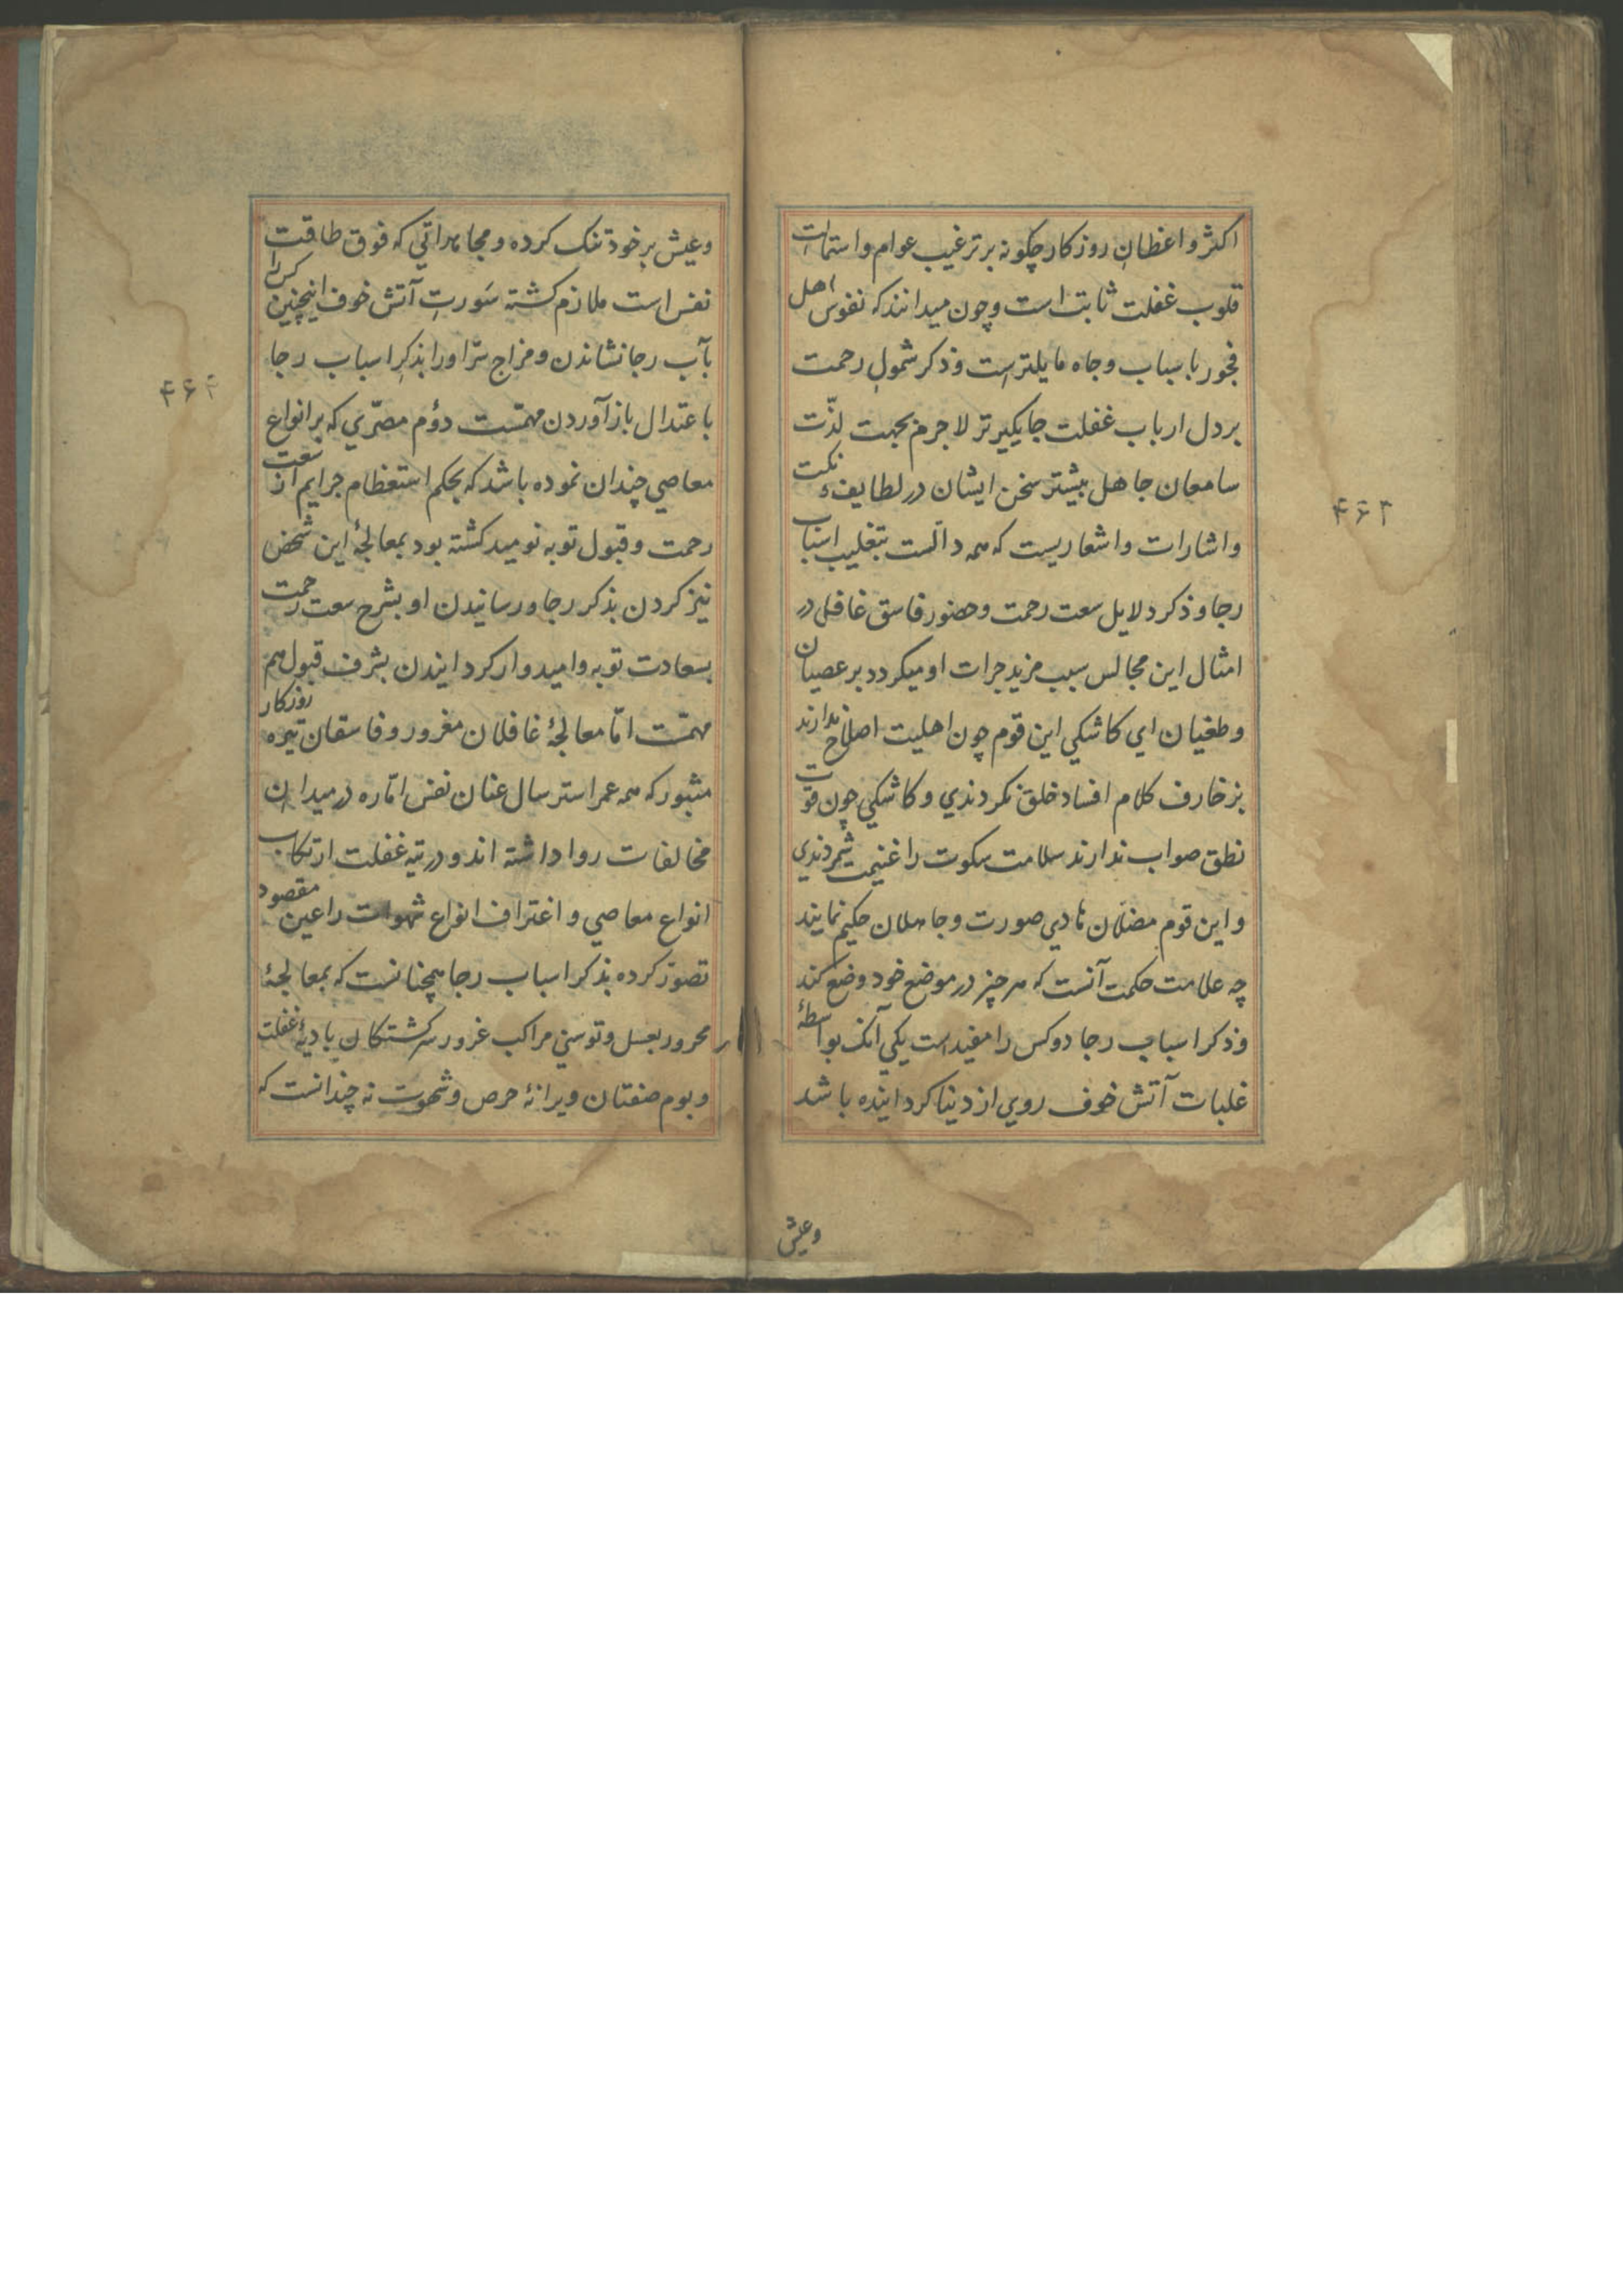 اکثر واعظان روزکار چکونه بر ترغیب عوام و استمالت
قلوب غفلت ثابت است و چون میدانند که نفوس اهل
فجور باسباب وجاه مایلترست و ذکر شمول رحمت
بر دل ارباب غفلت جایکیرتر لاجرم بجهت لذّت
سامعان جاهل بیشتر سخن ایشان در لطایف نکت
و اشارات و اشعاریست که همه دالست بتغلیب اسباب
رجا و ذکر دلایل سعت رحمت و حضور فاسق غافل در
امثال این مجالس سبب مزید جرات او میکردد بر عصیان
و طغیان ای کاشکی این قوم چون اهلیت اصلاح ندارند
بزخارف کلام افساد خلق نکردندی و کاشکی چون قوّت
نطق صواب ندارند سلامت سکوت را غنیمت شمردندی
و این قوم مضلّان هادی صورت و جاهلان حکیم نمایند
چه علامت حکمت آنست که هر چیز در موضع خود وضع کند
و ذکر اسباب رجا دو کس را مفید است یکی آنک بواسطهٔ
غلبات آتش خوف روی از دنیا کردانیده باشد
وعیش
۴۶۳
وعیش بر خود تنک کرده و مجاهداتی که فوق طاقت
نفس است ملازم کشته سَورت آتش خوف اینچنین کس را
بآب رجا نشاندن و مزاج سرّ او را بذکر اسباب رجا
باعتدال باز آوردن مهمّست دوّم مصرّی که بر انواع
معاصی چندان نموده باشد که بحکم استعظام جرایم از سعت
رحمت و قبول توبه نومید کشته بود بمعالجهٔ این شخص
نیز کردن بذکر رجا و رسانیدن او بشرح سعت رحمت
بسعادت توبه و امیدوار کردانیدن بشرف قبول هم
مهمّست امّا معالجهٔ غافلان مغرور و فاسقان تیره روزکار
مثبور که همه عمر استرسال عنان نفس امّاره در میدان
مخالفات روا داشته اند و در تیه غفلت ارتکاب
انواع معاصی و اغتراف انواع شهوات را عین مقصود
تصوّر کرده بذکر اسباب رجا همچنانست که بمعالجهٔ
محرور بعسل و توسنی مراکب غرور سرکشتکان بادیهٔ غفلت
و بوم صفتان ویرانهٔ حرص و شهوت نه چندانست که
۴۶۴